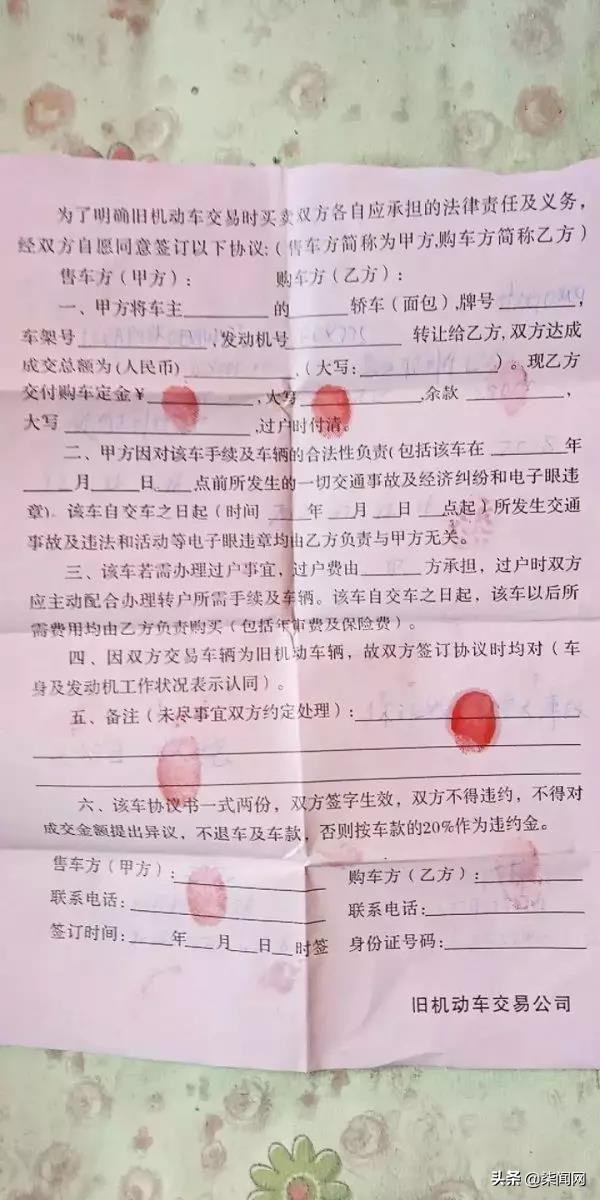 为了明确旧机动车交易时买卖双方各自应承担的法律责任及义务，
经双方自愿同意签订以下协议:(售车方简称为甲方,购车方简称乙方)
售车方(甲方)： 购车方(乙方)：
一、甲方将车主________的______轿车(面包),牌号______,
车架号____________,发动机号____________转让给乙方,双方达成
成交总额为(人民币)____________,(大写:____________)。现乙方
交付购车定金¥____________,大写____________,余款__________,
大写__________________,过户时付清。
二、甲方因对该车手续及车辆的合法性负责(包括该车在________年
____月____日____点前所发生的一切交通事故及经济纠纷和电子眼违
章)。该车自交车之日起(时间____年____月____日____点起)所发生交通
事故及违法和活动等电子眼违章均由乙方负责与甲方无关。
三、该车若需办理过户事宜,过户费由______方承担，过户时双方
应主动配合办理转户所需手续及车辆。该车自交车之日起，该车以后所
需费用均由乙方负责购买(包括年审费及保险费)。
四、因双方交易车辆为旧机动车辆，故双方签订协议时均对(车
身及发动机工作状况表示认同)。
五、备注(未尽事宜双方约定处理)：____________________
六、该车协议书一式两份，双方签字生效，双方不得违约，不得对
成交金额提出异议，不退车及车款，否则按车款的20%作为违约金。
售车方(甲方)：____________ 购车方(乙方)：____________
联系电话:____________ 联系电话:____________
签订时间:____年____月____日____时签 身份证号码:____________
旧机动车交易公司
头条 @柒闻网